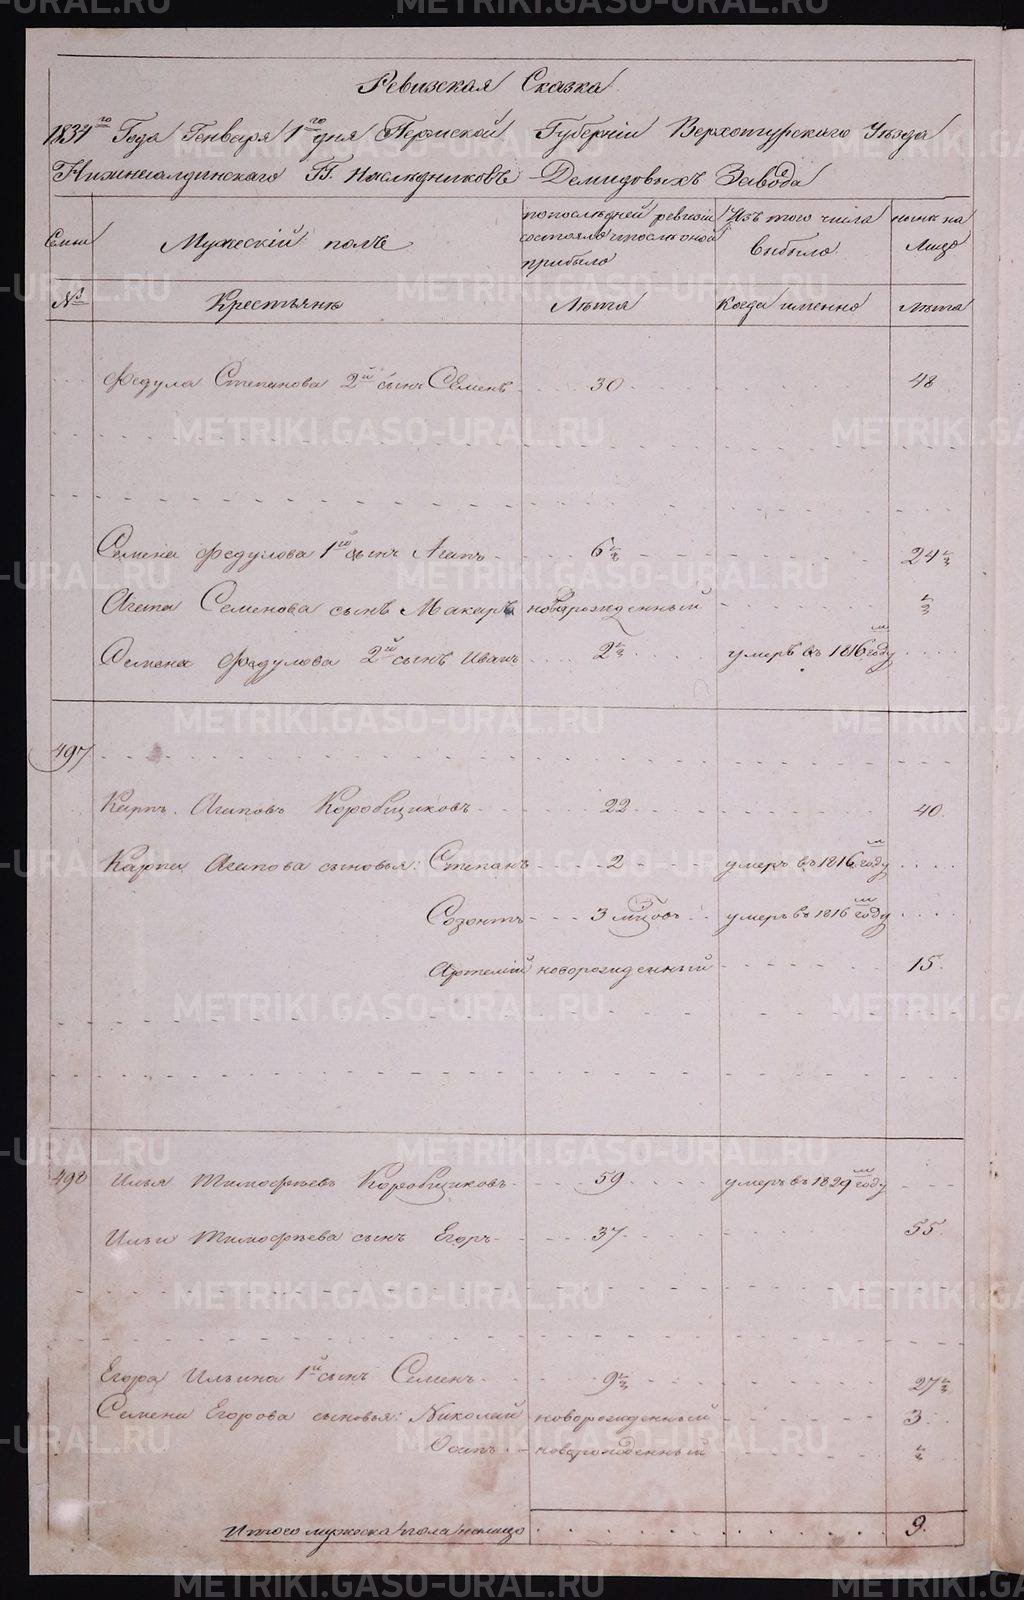 Ревизская Сказка
1834го Года Генваря 1го дня Пермской Губерніи Верхотурскаго Уезда
Нижнесалдинскаго Г.Г. Наследниковъ Демидовыхъ Завода
Семьи
Мужескій полъ
по последней ревизіи состояло и после оной прибыло
Изъ того числа выбыло
ныне на лицо
№
Крестьяне
Лета
Когда именно
Лета
Федула Степанова 2й сынъ Семенъ 30 48
Семена Федулова 1й сынъ Агапъ 6 1/2 24 1/2
Агапа Семенова сынъ Макаръ новорожденный 1/2
Семена Федулова 2й сынъ Иванъ 2 1/2 умеръ въ 1816м году
497
Карпъ Агаповъ Коробщиковъ 22 40
Карпа Агапова сыновья: Степанъ 2 умеръ въ 1816м году
Созонтъ 3 мцовъ умеръ въ 1816м году
Артемій новорожденный 15
498 Илья Тимофеевъ Коробщиковъ 59 умеръ въ 1829м году
Ильи Тимофеева сынъ Егоръ 37 55
Егора Ильина 1й сынъ Семенъ 9 1/2 27 1/2
Семена Егорова сыновья: Николай новорожденный 3
Осипъ новорожденный 1/2
Итого мужеска пола налицо 9
METRIKI.GASO-URAL.RU